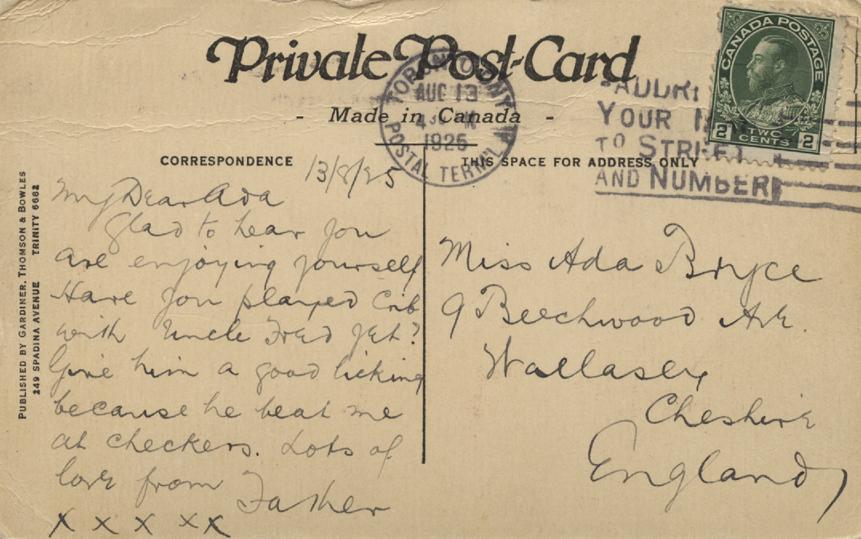 Private Post-Card
- Made in Canada -
TORONTO, ONT.
AUG 13
1925
POSTAL TERM'L A
YOUR
TO STREET
AND NUMBER
CANADA POSTAGE
2 TWO CENTS 2
CORRESPONDENCE
THIS SPACE FOR ADDRESS ONLY
PUBLISHED BY GARDINER, THOMSON & BOWLES
249 SPADINA AVENUE TRINITY 6682
13/8/25
My Dear Ada
Glad to hear you
are enjoying yourself
Have you played Crib
with Uncle Fred yet?
Give him a good licking
because he beat me
at checkers. Lots of
love from Father
x x x x x
Miss Ada Bryce
9 Beechwood Ave.
Wallasey
Cheshire
England